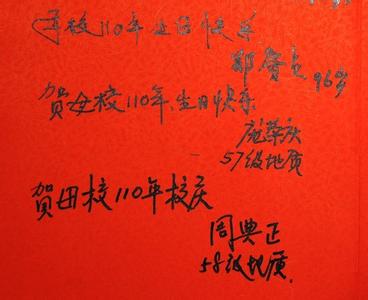 母校110年生日快乐
96岁
贺母校110年生日快乐
庞荣庆
57级地质
贺母校110年校庆
周典正
58级地质